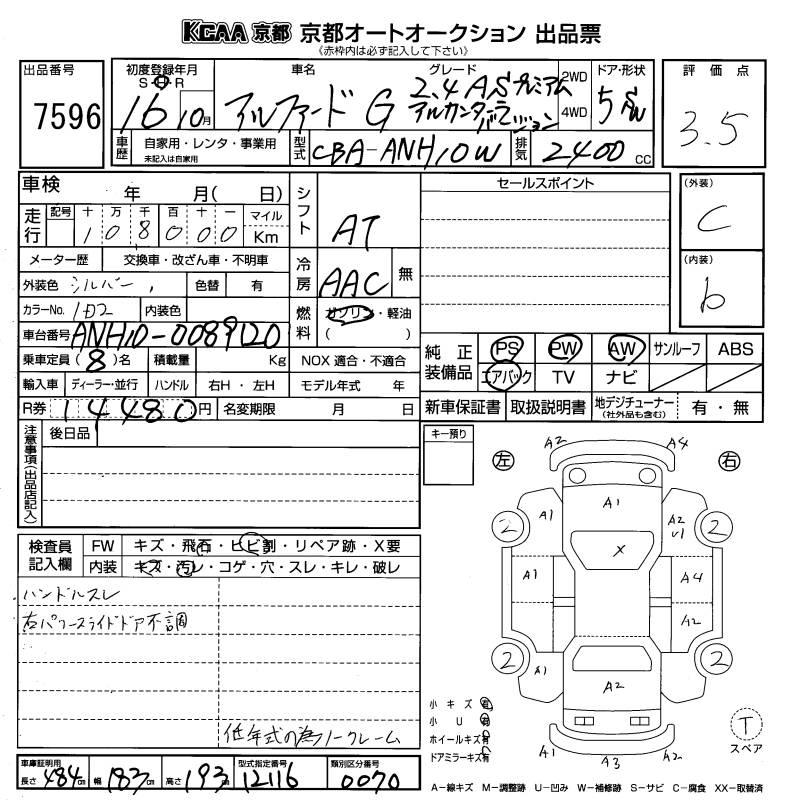 KCAA 京都 京都オートオークション 出品票
《赤枠内は必ず記入して下さい》
出品番号
7596
初度登録年月
S・H・R
16 10月
車名
アルファード G
グレード
2.4 ASプレミアム
アルカンターラバージョン
2WD
4WD
ドア・形状
5 SW
評価点
3.5
車歴
自家用・レンタ・事業用
未記入は自家用
型式
CBA-ANH10W
排気
2400 CC
車検 年 月( 日)
シフト
AT
セールスポイント
(外装)
C
走行
記号 十 万 千 百 十 一 マイル
1 0 8 0 0 0 Km
メーター歴 交換車・改ざん車・不明車
冷房
AAC 無
(内装)
b
外装色 シルバー 色替 有
カラーNo. 1D2 内装色
燃料
ガソリン・軽油
( )
車台番号 ANH10-0089120
乗車定員 (8)名 積載量 Kg NOX 適合・不適合
輸入車 ディーラー・並行 ハンドル 右H・左H モデル年式 年
R券 14480円 名変期限 月 日
純正装備品
PS PW AW サンルーフ ABS
エアバック TV ナビ
新車保証書 取扱説明書 地デジチューナー 有・無
(社外品も含む)
注意事項(出品店記入)
後日品
キー預り
左 右
A2 A4
A1
A1 A2
U1
2 2
X
A1 A4
A2
2 2
A1 A1
A2
A1 A3 A2
検査員記入欄
FW キズ・飛石・ヒビ割・リペア跡・X要
内装 キズ・汚レ・コゲ・穴・スレ・キレ・破レ
ハンドルスレ
右パワースライドドア不調
低年式の為ノークレーム
小キズ 有
小U 有
ホイールキズ有
ドアミラーキズ有
T
スペア
車庫証明用
長さ 484cm 幅 183cm 高さ 193cm
型式指定番号
12116
類別区分番号
0070
A−線キズ M−調整跡 U−凹み W−補修跡 S−サビ C−腐食 XX−取替済